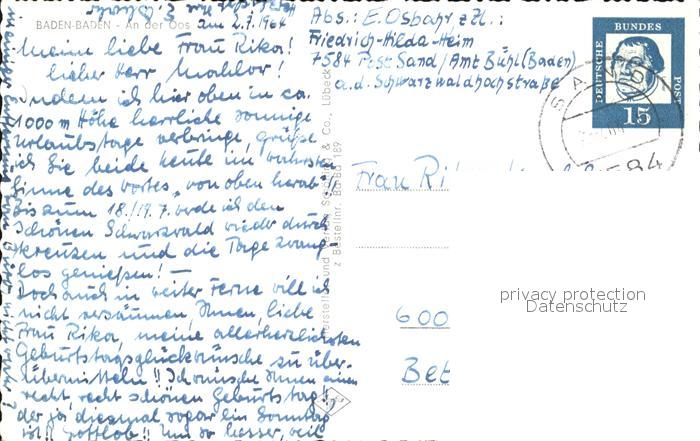 BADEN-BADEN - An der Oos
am 2.7.1964
Meine liebe Frau Rika!
lieber Herr Mahlor!
Indem ich hier oben in ca.
1000 m Höhe herrliche sonnige
Urlaubstage verbringe, grüße
ich Sie beide heute im wahrsten
Sinne des Wortes „von oben herab"!
Bis zum 18./19.7. werde ich den
schönen Schwarzwald wieder durch
kreuzen und die Tage zwang
los genießen! —
Doch auch in weiter Ferne will ich
nicht versäumen, Ihnen, liebe
Frau Rika, meine allerherzlichsten
Geburtstagsglückwünsche zu über-
übermitteln!! Ich wünsche Ihnen einen
recht, recht schönen Geburtstag!
der ja diesmal sogar ein Sonntag
ist!! Gottlob!! Um so besser, weil
Abs.: E. Osbahr zzl.:
Friedrich-Hilda-Heim
7584 Post Sand/Amt Bühl (Baden)
a.d. Schwarzwaldhochstraße
DEUTSCHE
BUNDES
POST
15
584
Frau Ri
600
Bet
& Co., Lübeck
Bestellnr.
189
privacy protection
Datenschutz